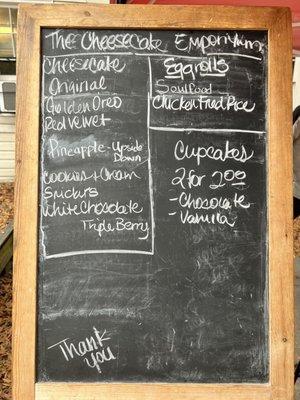 The Cheesecake Emporium
Cheesecake
Original
Golden Oreo
Red Velvet
Pineapple-Upside
Down
Cookies + Cream
Snickers
White Chocolate
Triple Berry
Eggrolls
Soulfood
Chicken Fried Rice
Cupcakes
2 for 2.00
- Chocolate
- Vanilla
Thank
you